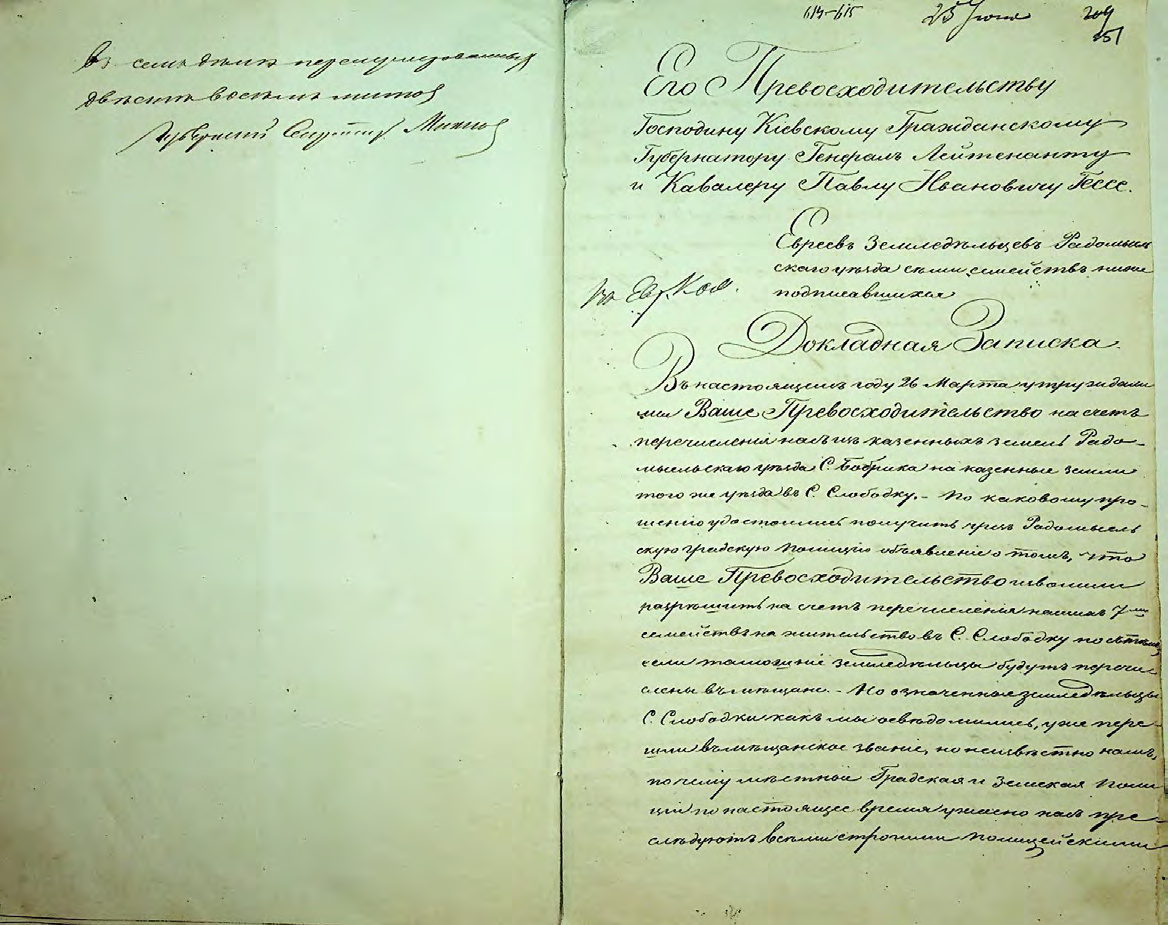 Въ семъ дѣлѣ перенумерованныхъ
двѣсти восемь листовъ
Губернскій Секретарь
614-615
25 Іюня
209
251
Его Превосходительству
Господину Кіевскому Гражданскому
Губернатору Генералъ Лейтенанту
и Кавалеру Павлу Ивановичу Гессе.
Евреевъ Земледѣльцевъ Радомысль
скаго уѣзда семи семействъ ниже
подписавшихся
Докладная Записка.
Въ настоящемъ году 26 Марта утруждали
мы Ваше Превосходительство на счетъ
перечисленія насъ изъ казенныхъ земель Радо-
мысльскаго уѣзда С. Бобрика на казенные земли
того же уѣзда въ С. Слободку. - По каковому про-
шенію удостоились получить чрезъ Радомысль
скую градскую Полицію объявленіе о томъ, что
Ваше Превосходительство изволили
разрѣшить на счетъ перечисленія нашихъ 7ми
семействъ на жительство въ С. Слободку
если тамошніе земледѣльцы будутъ перечи
слены въ мѣщане. - Но означенные земледѣльцы
С. Слободки какъ мы освѣдомились, уже пере-
шли въ мѣщанское званіе, но неизвѣстно намъ,
почему мѣстной Градская и Земская Поли
ціи по настоящее время ужасно насъ пре-
слѣдуютъ всѣми строгими Полицейскими